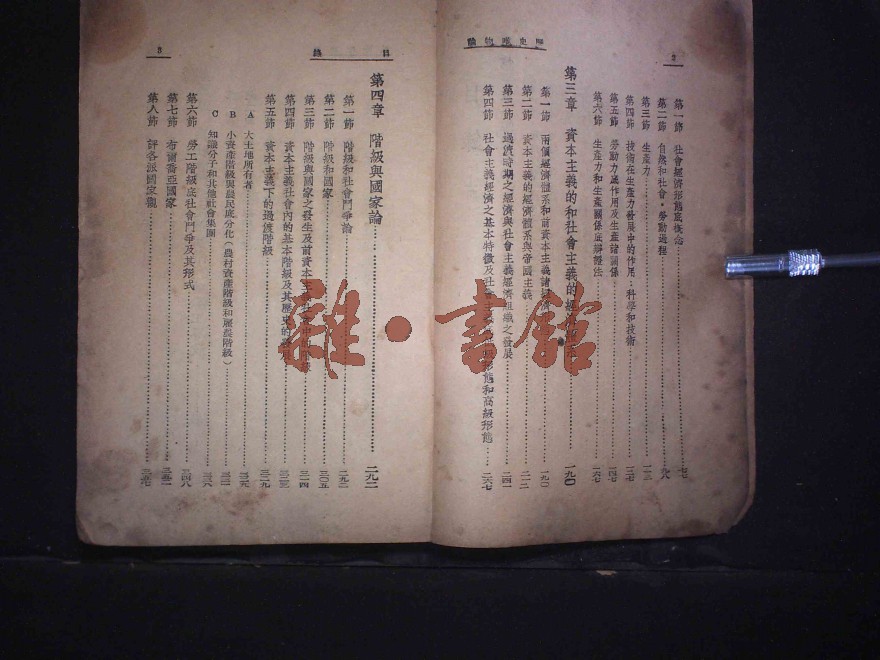 歷史唯物論
2
第一節 社會經濟形態底概論
第二節 自然和社會・勞動過程
第三節 生產力
第四節 技術在生產力發展中的作用:科學和技術
第五節 勞動力底作用及生產諸關係
第六節 生產力和生產關係底辯證法
第三章 資本主義的和社會主義的經 一九〇
第一節 兩個經濟體系和前資本主義諸 一九〇
第二節 資本主義的經濟體系與帝國主義 二一二
第三節 過渡時期之經濟與社會主義經濟組織之發展 二四一
第四節 社會主義經濟之基本特徵及社 形態和高級形態 二六七
目 錄
3
第四章 階級與國家論 二九二
第一節 階級和社會鬥爭論 二九二
第二節 階級和國家 三〇五
第三節 階級與國家之發生及前資本主 三一四
第四節 資本主義社會內的基本階級及其歷史的
第五節 資本主義下的過渡階級 三二九
A 大土地所有者
B 小資產階級與農民底分化(農村資產階級和雇農階級)
C 知識分子和其他社會集團
第六節 勞工階級底社會鬥爭及其形式 三四八
第七節 布爾喬亞國家
第八節 評各派國家觀
雜·書館